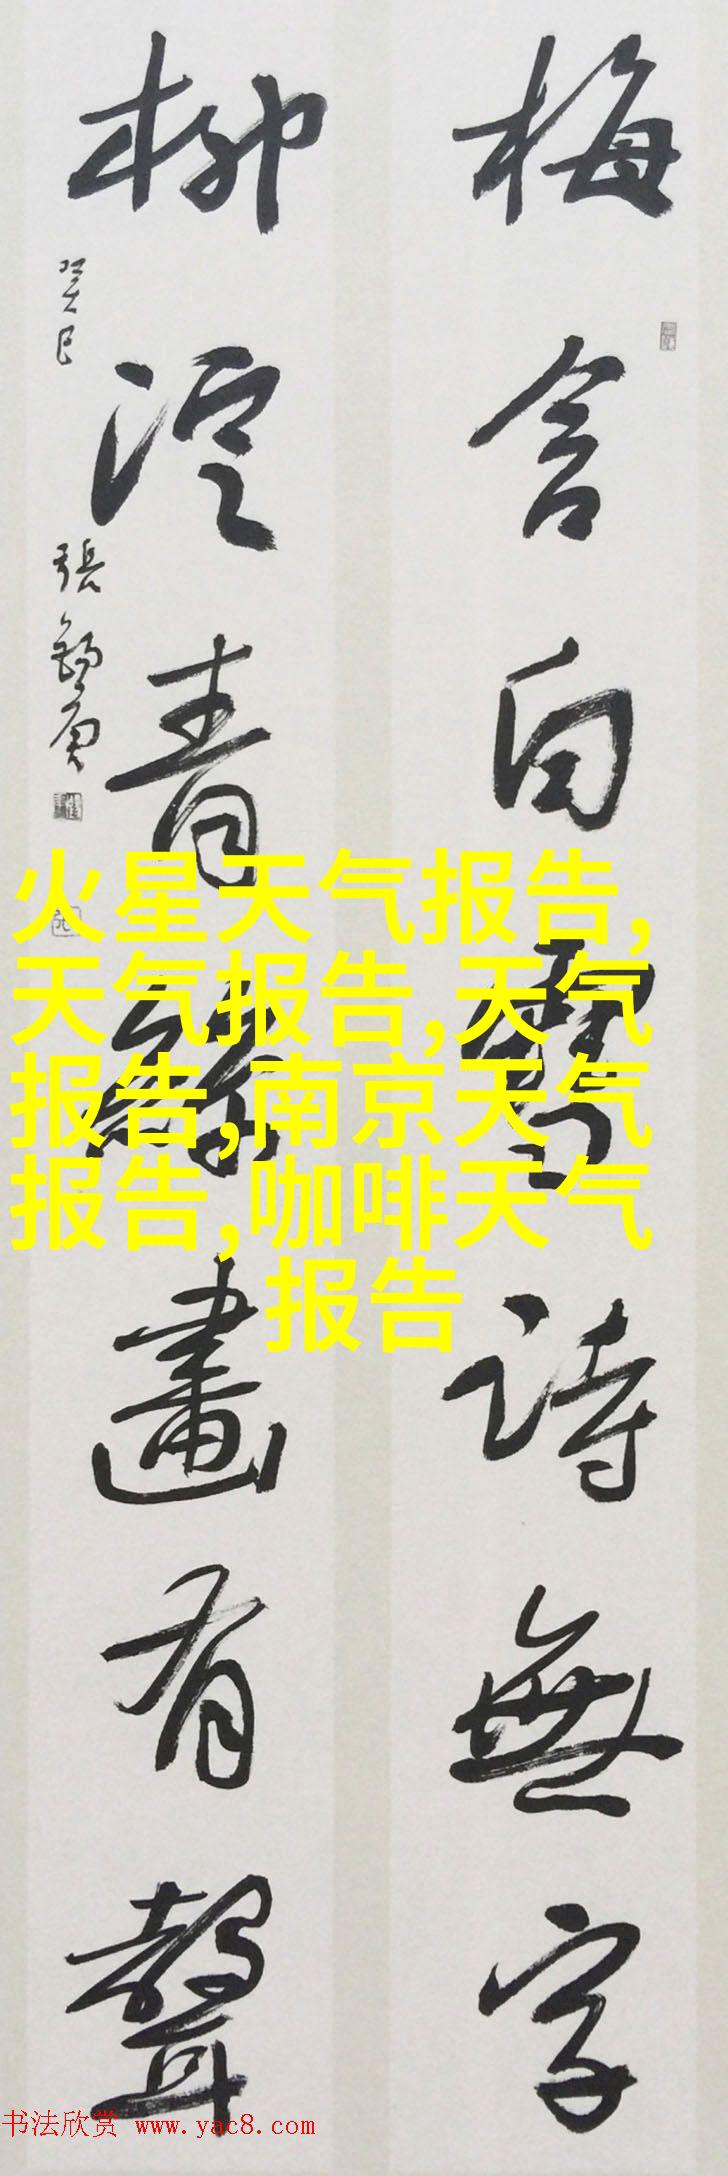 梅含白雪詩無字
柳浥青絲畫有聲
癸巳
張錦庚
火星天气报告,
天气报告,天气
报告,南京天气
报告,咖啡天气
报告
书法欣赏 www.yac8.com